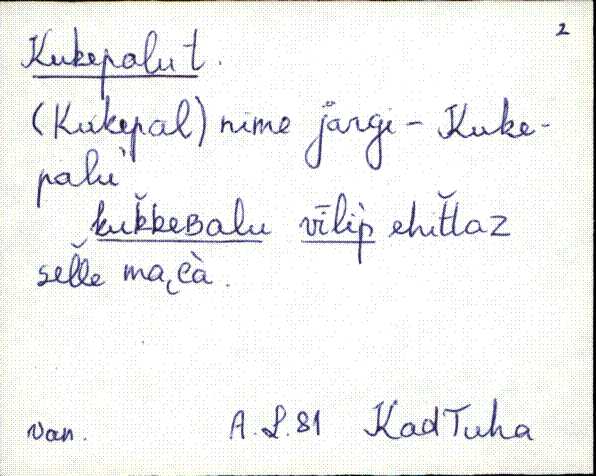 2
Kukepalu t.
(Kukepal) nime järgi – Kuke-
palu
kuk̆keʙalu vīlip̀ ehit̆laz
sel̆le ma̡jà.
van. A. L. 81 KadTuha